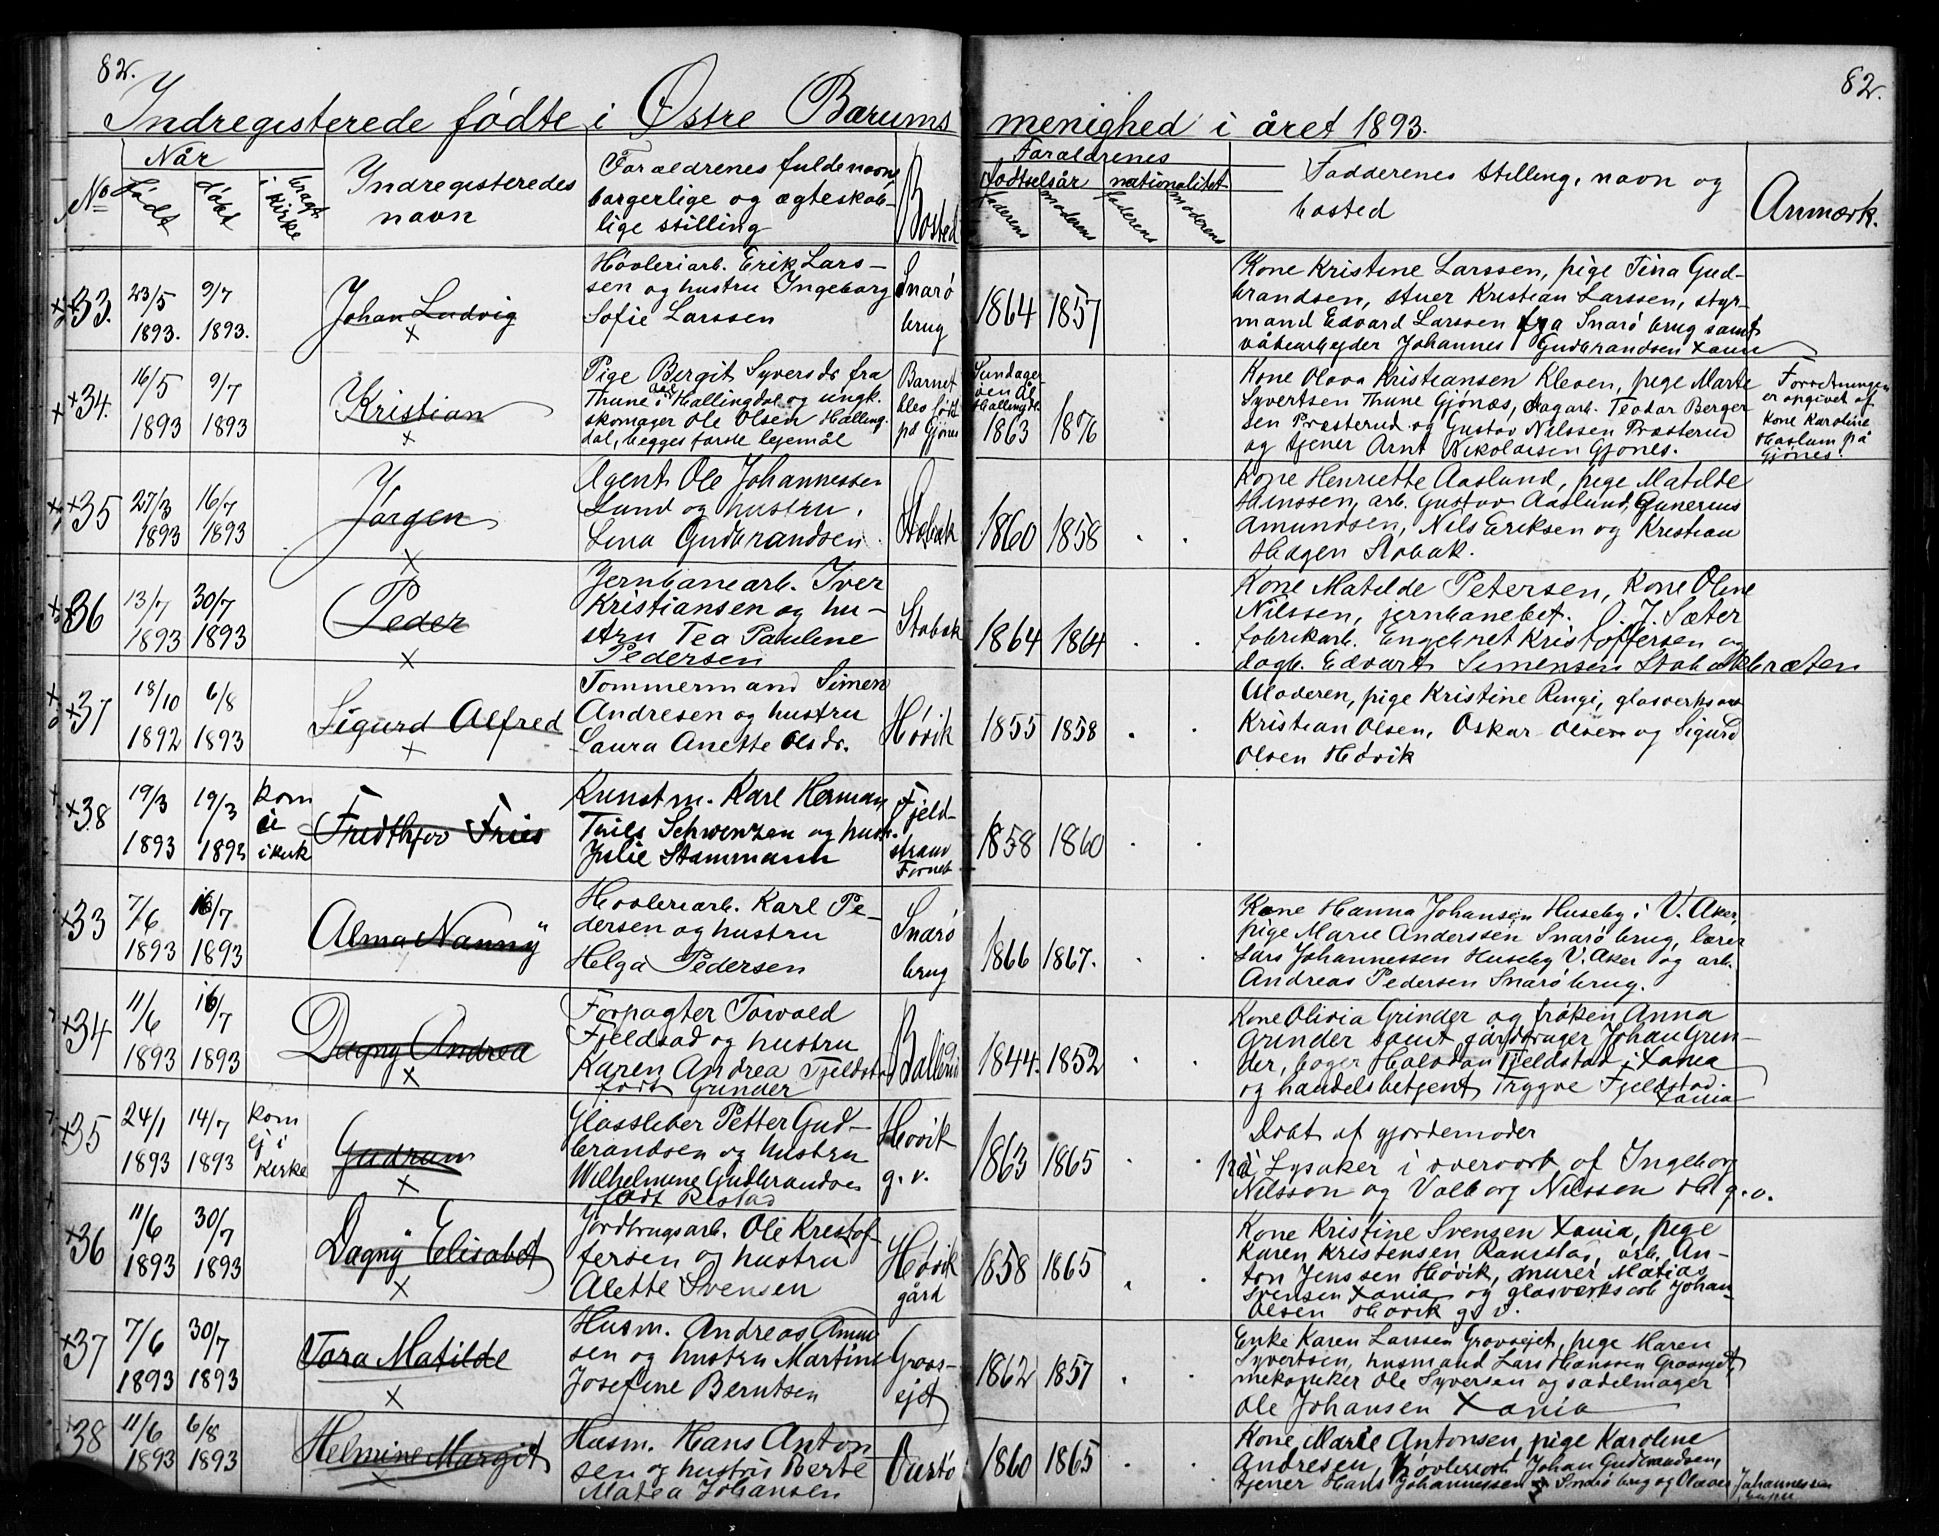 82.
82.
Indregisterede fødte i Østre Bærums menighed i året 1893.
No
Når
født
døbt
bragt i kirke
Indregisteredes
navn
Foraldrenes fulde navn,
borgerlige og ægteskab-
lige stilling
Bosted
Foraldrenes
fødselsår
faderens
moderens
nationalitet
faderens
moderens
Fadderenes stilling, navn og
bosted
Anmærk.
33. 23/5 1893. 9/7 1893.
Johan Ludvig
Høvleriarb. Erik Lars-
sen og hustru Ingeborg
Sofie Larssen
Snarø
brug
1864 1857
Kone Kristine Larssen, pige Tina Gud-
brandsen, stuer Kristian Larssen, styr-
mand Edvard Larssen fra Snarø brug samt
Johannes Gudbrandsen Xania
34. 16/5 1893 9/7 1893
Kristian
Pige Bergit Syversdr fra
Thune i Aal Hallingdal og ungk.
skomager Ole Olsen Halling-
dal, begges første lejemål
Barnet
blev født
på Gjønes
Hallingdl.
1863 1876
Kone Olova Kristiansen Kleven, pige Marte
Syvertsen Thune Gjønæs, dagarb. Teodor Berger-
sen Præsterud og Gustav Nilssen Præsterud
og tjener Arnt Nikolaisen Gjønes.
Forretningen
er opgivet af
kone Karoline
Haslum på
Gjønes.
35 27/3 1893 16/7 1893
Jørgen
Agent Ole Johannessen
Lund og hustru
Lina Gudbrandsen
Stabæk
1860 1858
Kone Henriette Aaslund, pige Matilde
Hanssen, arb. Gustav Aaslund, Gunerius
Amundsen, Nils Eriksen og Kristian
Hagen Stabæk.
36 13/7 1893 30/7 1893
Peder
Jernbanearb. Iver
Kristiansen og hu-
stru Tea Pauline
Pedersen
Stabæk
1864 1864
Kone Matilde Petersen, Kone Oline
Nilssen, jernbanebet. O. J. Sæter
fabrikarb. Engebret Kristoffersen og
dagb. Edvart Simensen Stabækbråten
37 18/10 1892 6/8 1893
Sigurd Alfred
Tømmermand Simen
Andresen og hustru
Laura Anette Olsdr.
Høvik
1855 1858
Moderen, pige Kristine Ringi, glasverksarb
Kristian Olsen, Oskar Olsen og Sigurd
Olsen Høvik
38 19/3 1893 19/3 1893
kom
ei
i kirk
Fridthjov Fries
Kunstm. Karl Herman
Schwenzen og hust.
Julie Stammann
Fjeld-
strand
Forneb
1858 1860
33 7/6 1893 16/7 1893
Alma Nanny
Høvleriarb. Karl Pe-
dersen og hustru
Helga Pedersen
Snarø
brug
1866 1867.
Kone Hanna Johansen Huseby i V. Aker,
pige Marie Anderssen Snarø brug, lærer
Lars Johannessen Huseby V. Aker og arb.
Andreas Pedersen Snarøbrug.
34 11/6 1893 16/7 1893
Dagny Andrea
Forpagter Torvald
Fjeldstad og hustru
Karen Andrea Fjeldstad
født Grinder
Ballerud
1844. 1852
Kone Olivia Grinder og frøken Anna
Grinder samt gårdbruger Johan Grin-
der, bager Halvdan Fjeldstad i Xania
og handelsbetjent Trygve Fjeldstad.
Xania
35 24/1 1893 14/7 1893
kom
ej i
kirke
Gudrun
Glassliber Petter Gud-
brandsen og hustru
Wilhelmine Gudbrandsen
født Ristad
Høvik
g. v.
1863 1865
Døbt af gjordemoder
på Lysaker i overvær af Ingeborg
Nilsson og Valborg Nilssen g. v.
36 11/6 1893 30/7 1893
Dagny Elisabet
Jordbrugsarb. Ole Kristof-
fersen og hustru
Alette Svensen
Høvik
gård
1858 1865
Kone Kristine Svensen Xania, pige
Karen Kristensen Ramstad, arb. An-
ton Jenssen Høvik, murer Matias
Svensen Xania og glasverksarb Johan
Olsen Høvik g. v.
37 7/6 1893 30/7 1893
Tora Matilde
Husm. Andreas
sen og hustru Martine
Josefine Berntsen
Gravs-
ejet
1862 1857
Enke Karen Larssen Gravsejet, pige Maren
Syvertsen, husmand Lars Hanssen Gravsejet,
mekaniker Ole Syversen og sadelmager
Ole Johansen Xania
38 11/6 1893 6/8 1893
Helmine Margit
Husm. Hans Anton-
sen og hustru Berte
Matea Johansen
Ourtø
1860 1865
Kone Marie Antonsen, pige Karoline
Andresen, høvleriarb Johan Gudbrandsen,
tjener Hans Johannessen Snarø brug og Johannessen